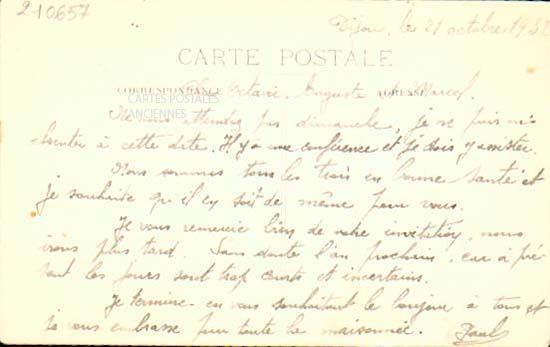 2-10657
Dijon, le 21 octobre 1932
CARTE POSTALE
CORRESPONDANCE ADRESSE
CARTES POSTALES
ANCIENNES
Octavie, Auguste et Marcel.
Ne nous attendez pas dimanche, je ne puis m'
absenter à cette date. Il y a une conférence et je dois y assister.
Nous sommes tous les trois en bonne santé et
je souhaite qu'il en soit de même pour vous.
Je vous remercie bien de votre invitation, nous
irons plus tard. Sans doute l'an prochain, car à pré-
sent les jours sont trop courts et incertains.
Je termine en vous souhaitant le bonjour à tous et
je vous embrasse pour toute la maisonnée. Paul